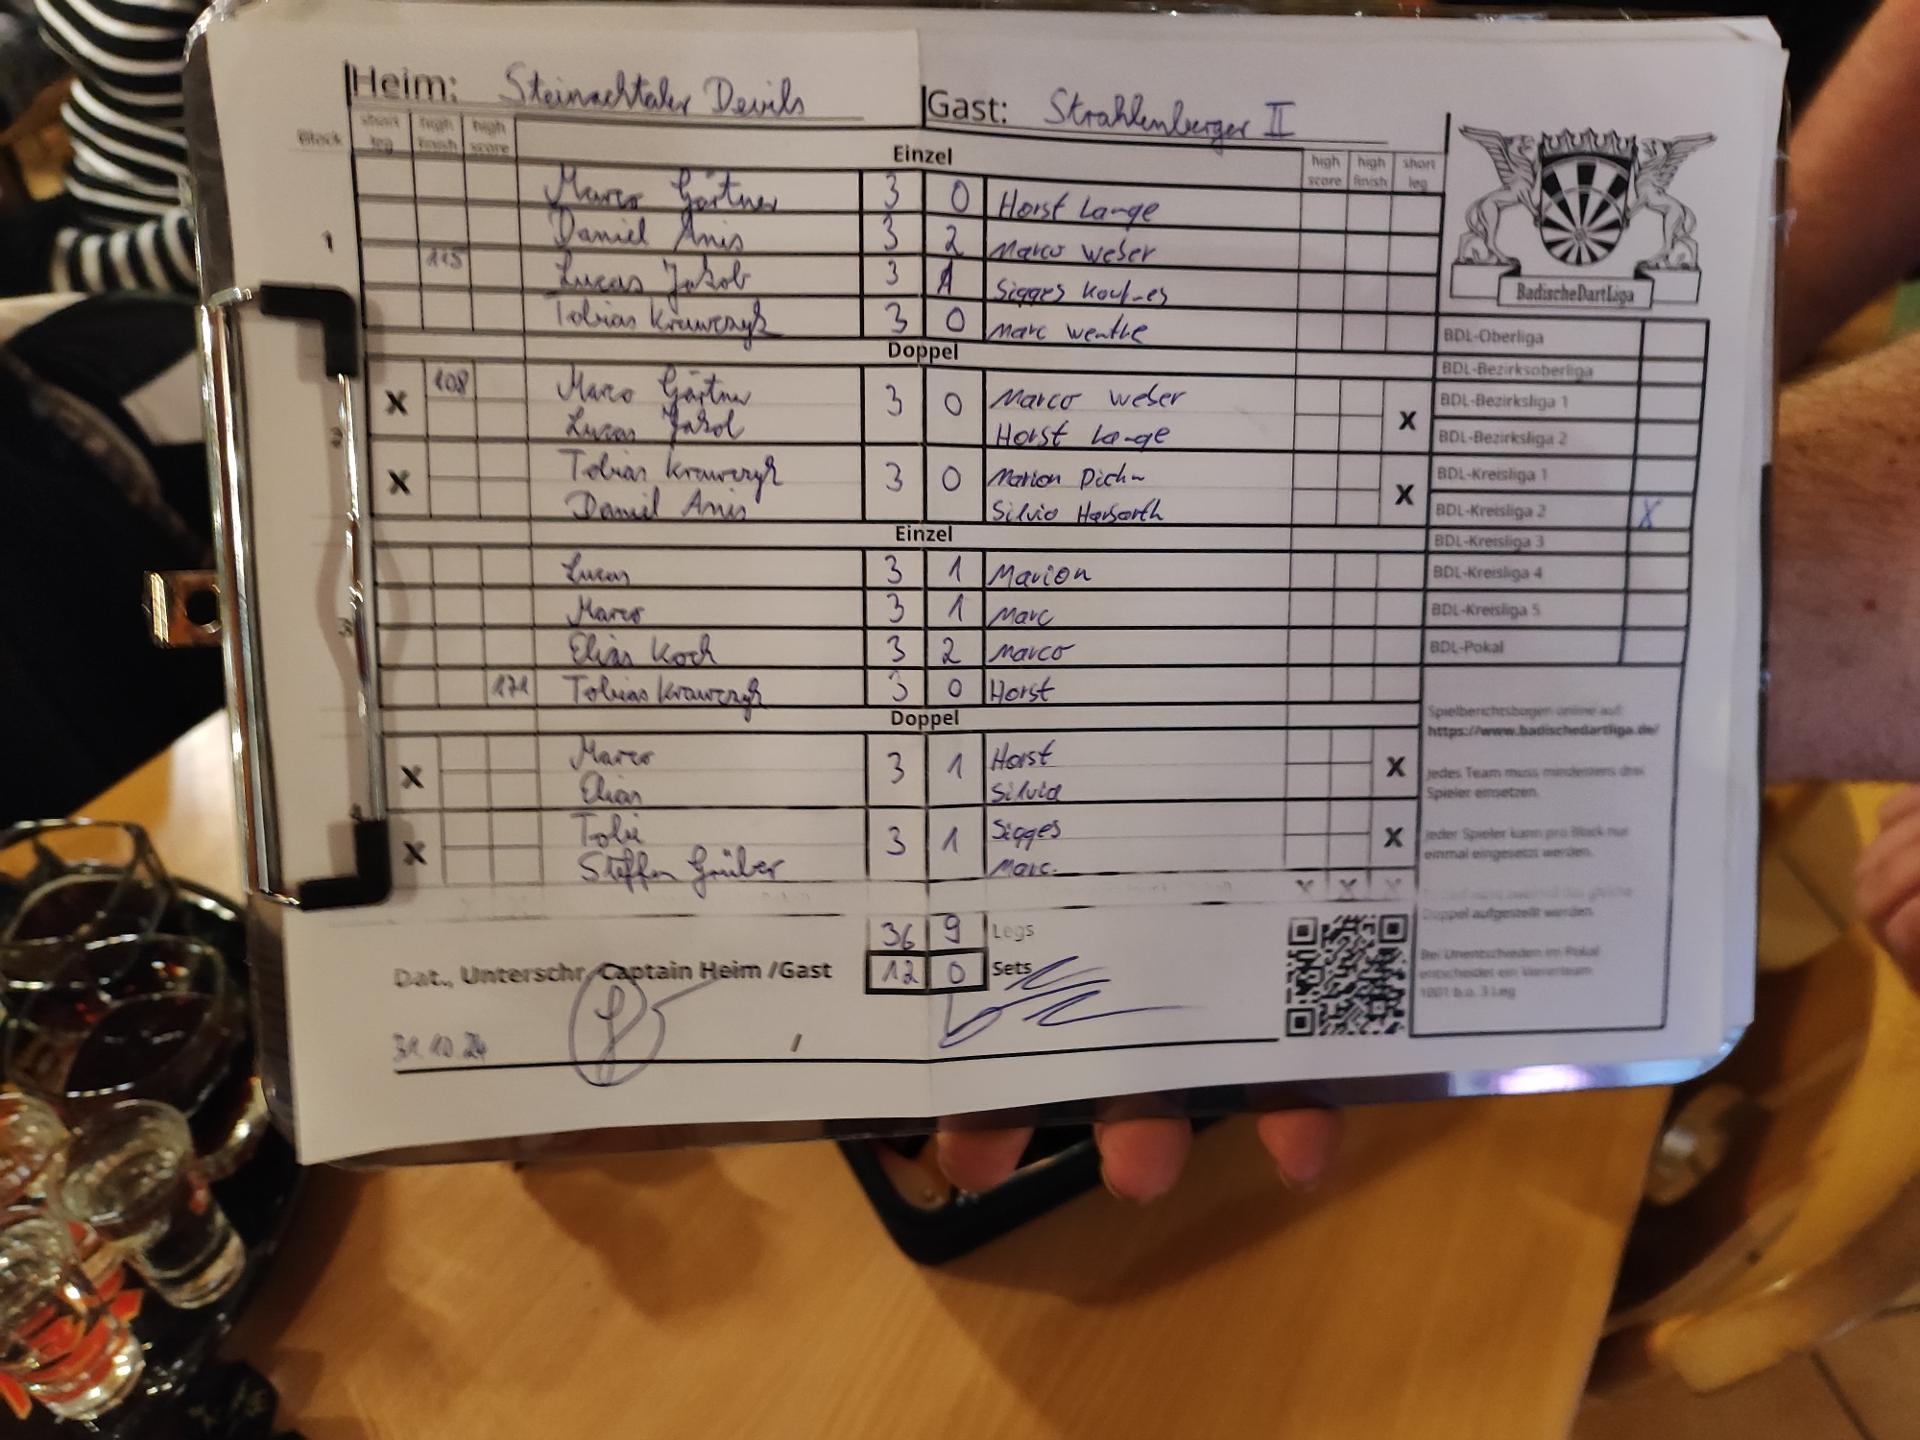 Heim: Steinachtaler Devils Gast: Strahlenberger II
Block short leg high finish high score Einzel high score high finish short leg
Marco Gärtner 3 0 Horst Lange
1 Daniel Anis 3 2 Marco Weber
115 Lucas Jakob 3 1 Sigges
Tobias Krawczyk 3 0 Marc Wenthe
Doppel
X 108 Marco Gärtner 3 0 Marco Weber X
2 Lucas Jakob Horst Lange
X Tobias Krawczyk 3 0 Marion X
Daniel Anis Silvio
Einzel
Lucas 3 1 Marion
3 Marco 3 1 Marc
Elias Koch 3 2 Marco
171 Tobias Krawczyk 3 0 Horst
Doppel
X Marco 3 1 Horst X
Elias Silvio
4 X Tobi 3 1 Sigges X
Steffen Grüber Marc
36 9 Legs
12 0 Sets
Dat., Unterschr. Captain Heim /Gast
31.10.24 /
BadischeDartLiga
BDL-Oberliga
BDL-Bezirksoberliga
BDL-Bezirksliga 1
BDL-Bezirksliga 2
BDL-Kreisliga 1
BDL-Kreisliga 2 X
BDL-Kreisliga 3
BDL-Kreisliga 4
BDL-Kreisliga 5
BDL-Pokal
Spielberichtsbogen online auf:
https://www.badischedartliga.de/
Jedes Team muss mindestens drei
Spieler einsetzen.
Jeder Spieler kann pro Block nur
einmal eingesetzt werden.
das gleiche
Doppel aufgestellt werden.
Bei Unentschieden im Pokal
entscheidet ein Viererteam
1001 b.o. 3 Leg